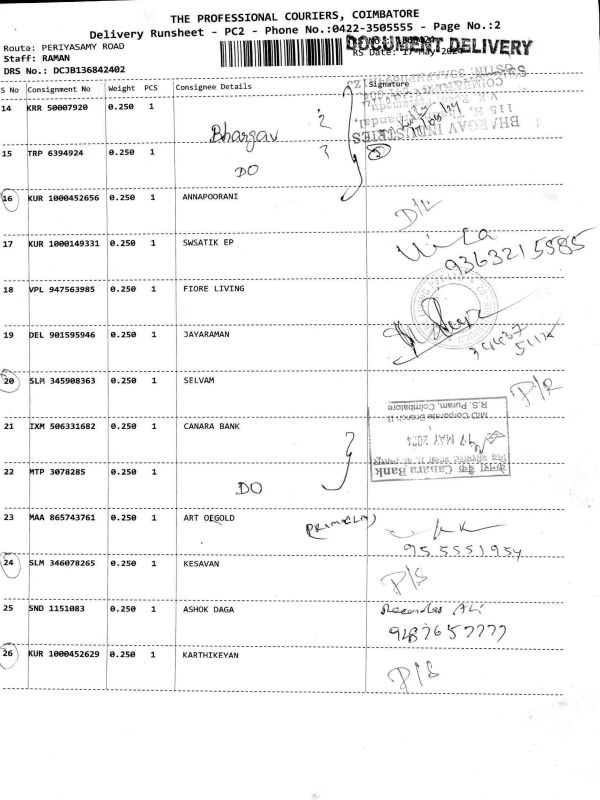 THE PROFESSIONAL COURIERS, COIMBATORE
Delivery Runsheet - PC2 - Phone No.:0422-3505555 - Page No.:2
Route: PERIYASAMY ROAD
DOCUMENT DELIVERY
Staff: RAMAN
RS Date: 17-May-2024
DRS No.: DCJB136842402
S No Consignment No Weight PCS Consignee Details Signature
14 KRR 50007920 0.250 1 Bhargav 2
BHARGAV INDUSTRIES
15 TRP 6394924 0.250 1 DO
16 KUR 1000452656 0.250 1 ANNAPOORANI D/L
17 KUR 1000149331 0.250 1 SWSATIK EP
9363215585
18 VPL 947563985 0.250 1 FIORE LIVING
19 DEL 901595946 0.250 1 JAYARAMAN
20 SLM 345908363 0.250 1 SELVAM P/R
21 IXM 506331682 0.250 1 CANARA BANK
केनरा बैंक Canara Bank
17 MAY 2024
MID Corporate Branch II
R.S. Puram, Coimbatore
22 MTP 3078285 0.250 1 DO
23 MAA 865743761 0.250 1 ART OEGOLD
9555551954
24 SLM 346078265 0.250 1 KESAVAN P/S
25 SND 1151083 0.250 1 ASHOK DAGA Ali
9287657777
26 KUR 1000452629 0.250 1 KARTHIKEYAN P/S